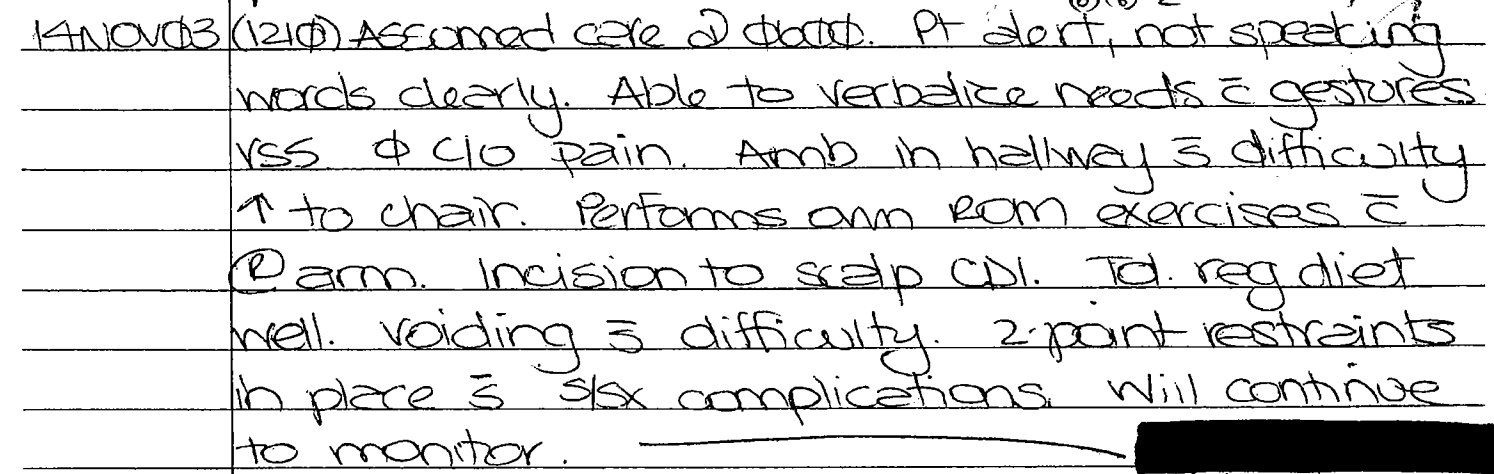 14NOV03 (1210) Assumed care @ 0600. Pt alert, not speaking
words clearly. Able to verbalize needs c̄ gestures
VSS Ø C/O pain. Amb in hallway s̄ difficulty
↑ to chair. Performs arm ROM exercises c̄
Ⓡ arm. Incision to scalp CDI. Tol. reg diet
well. Voiding s̄ difficulty. 2-point restraints
in place s̄ S/Sx complications. Will continue
to monitor.